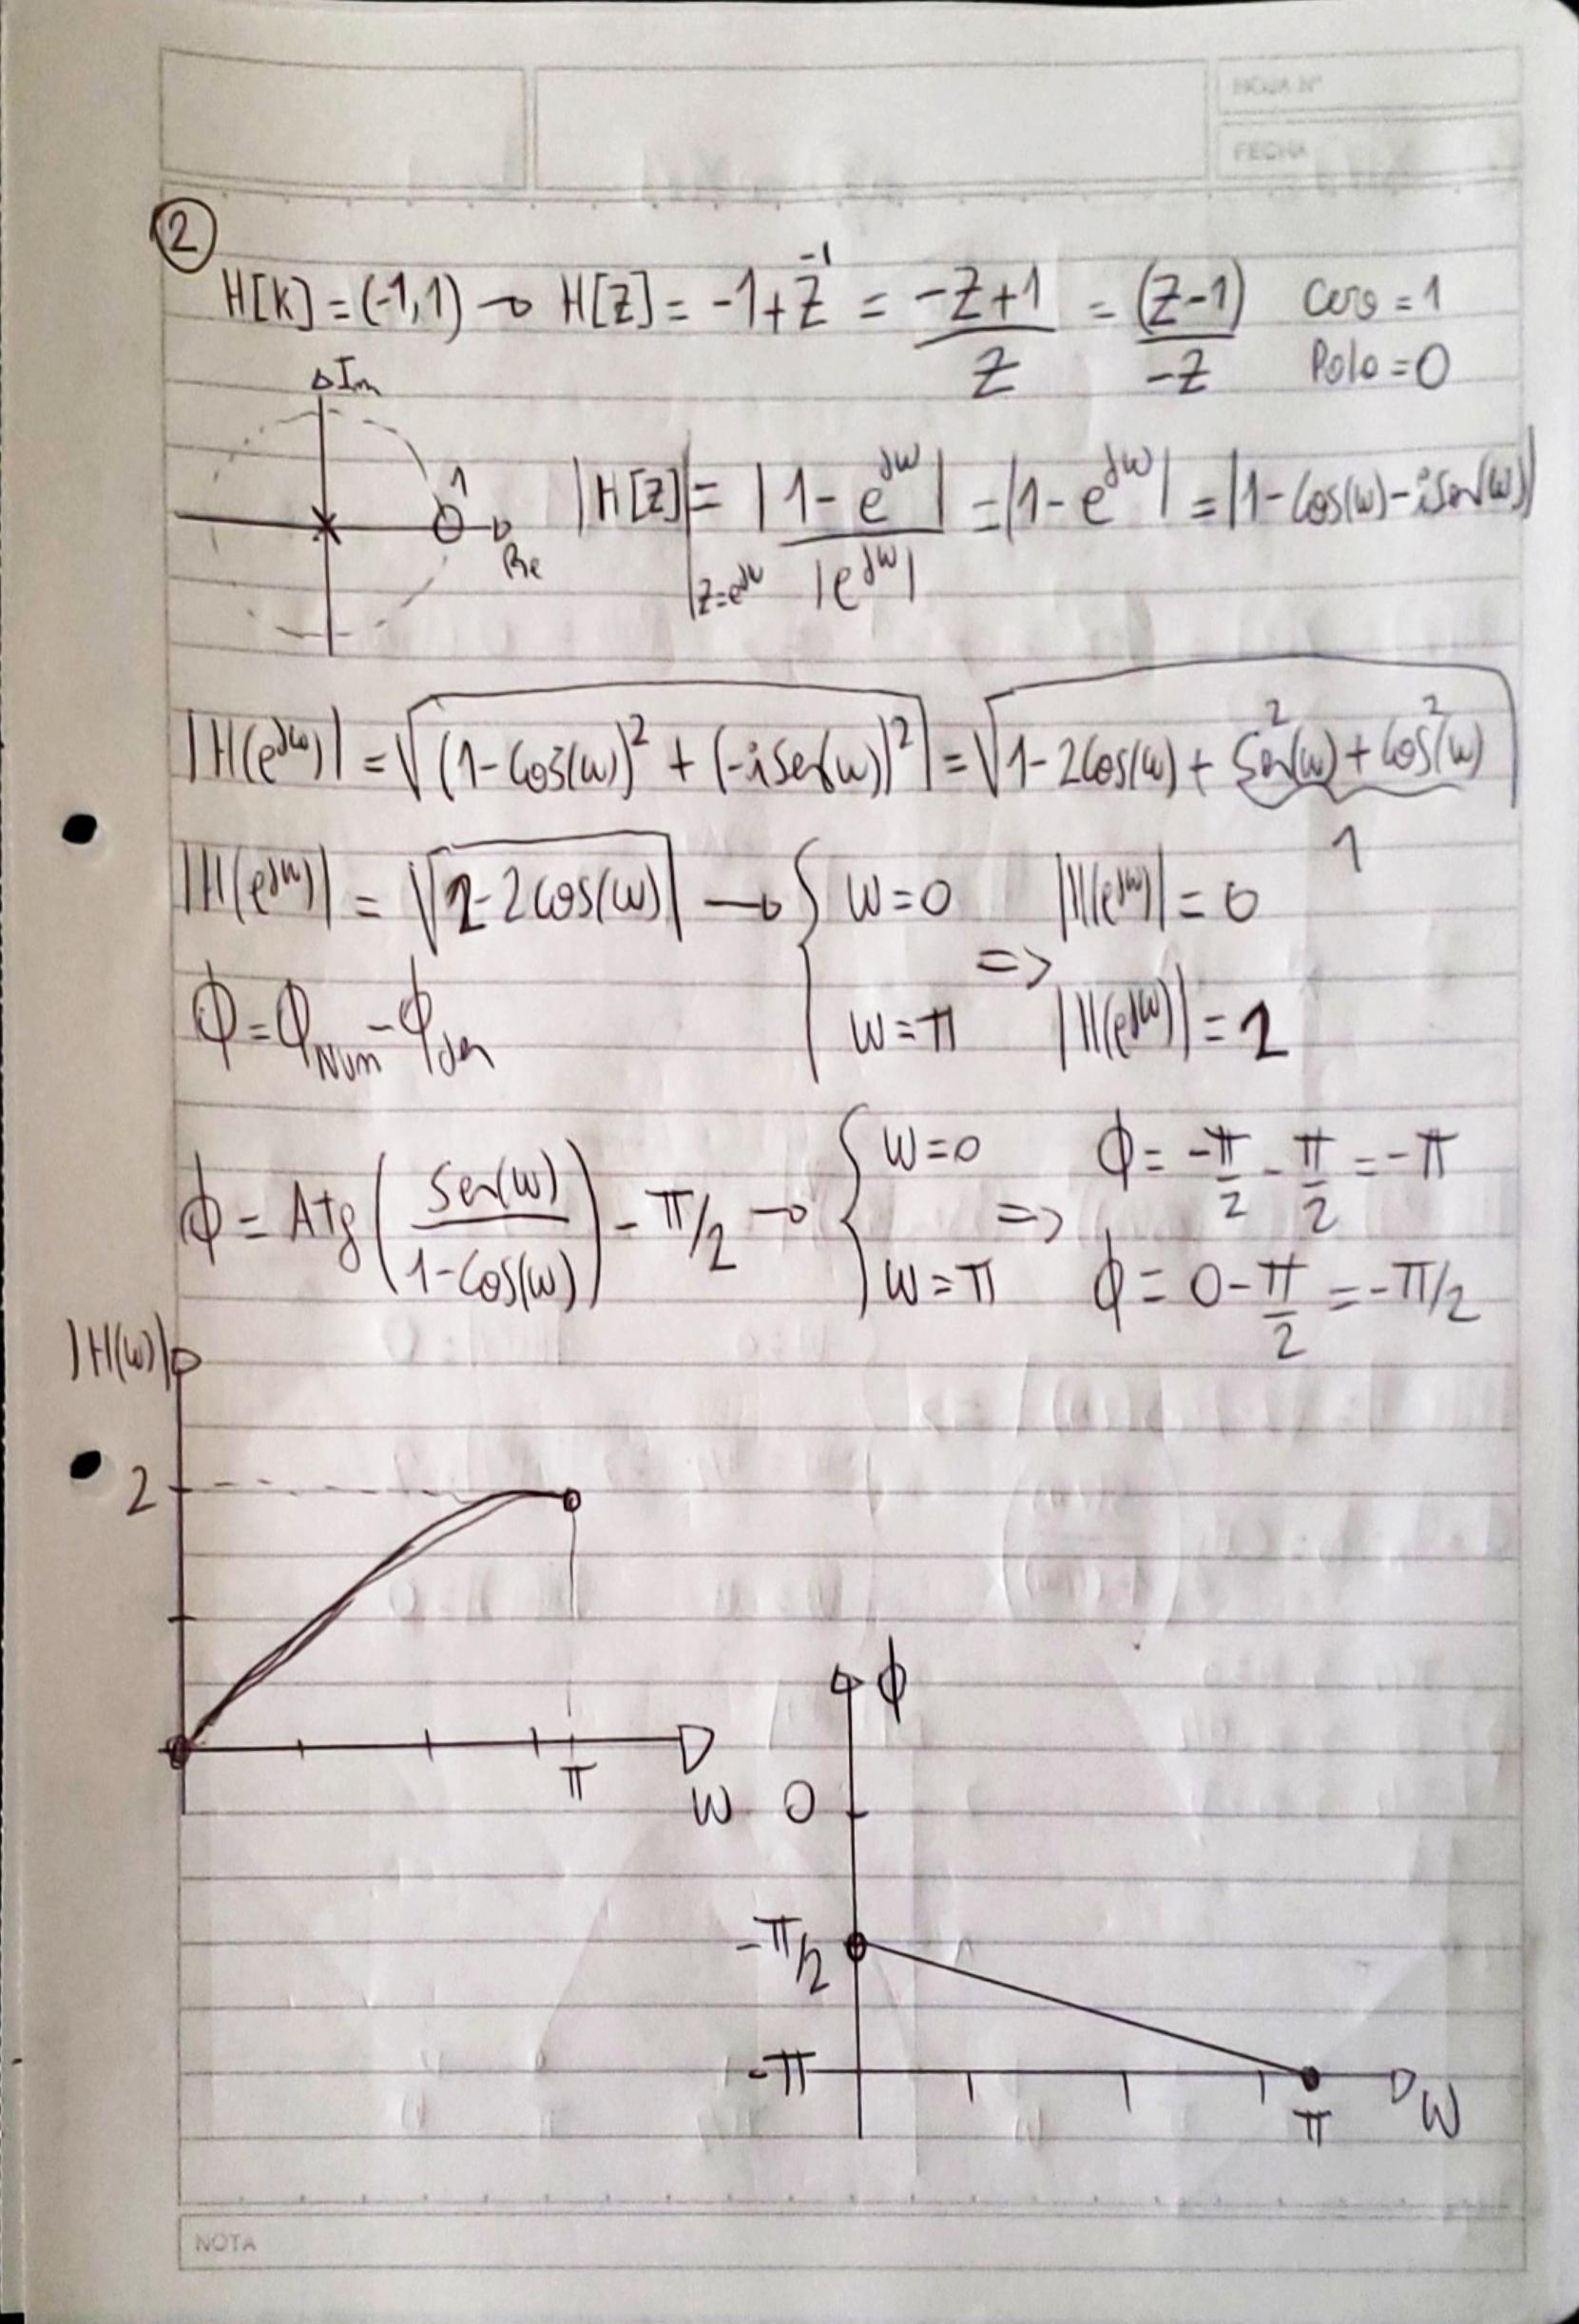 HOJA N°
FECHA
②
H[K] = (-1,1) → H[Z] = -1+Z^-1 = (-Z+1)/Z = (Z-1)/-Z Cero = 1
Polo = 0
Im
1
Re
|H[Z]| z=e^jw = |1-e^jw|/|e^jw| = |1-e^jw| = |1-Cos(w)-iSen(w)|
|H(e^jw)| = √((1-Cos(w))^2 + (-iSen(w))^2) = √(1-2Cos(w) + Sen^2(w) + Cos^2(w))
1
|H(e^jw)| = √(2-2Cos(w)) → { w=0 => |H(e^jw)| = 0
w=π |H(e^jw)| = 2
ϕ = ϕNum - ϕden
ϕ = Atg(Sen(w)/(1-Cos(w))) - π/2 → { w=0 => ϕ = -π/2 - π/2 = -π
w=π ϕ = 0 - π/2 = -π/2
|H(w)|
2
π
w
ϕ
0
-π/2
-π
π
w
NOTA